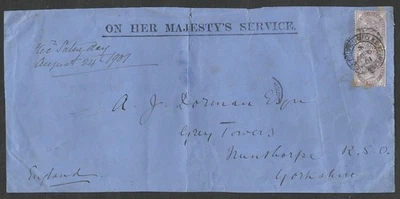 ON HER MAJESTY'S SERVICE.
Recd Saturday
August 24th 1901
A. J. Dorman Esqre
Grey Towers
Nunthorpe R.S.O.
Yorkshire
England